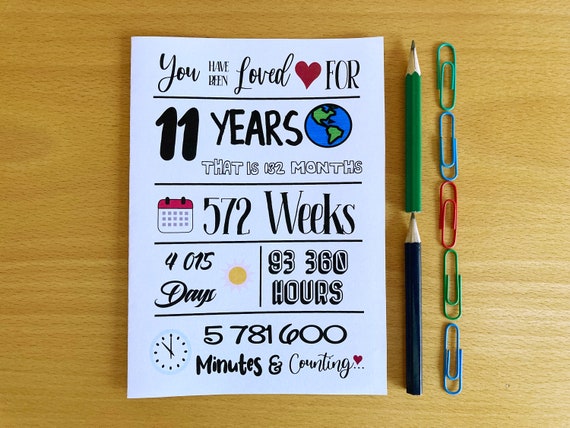 You HAVE BEEN Loved FOR
11 YEARS
THAT IS 132 MONTHS
572 Weeks
4 015 Days
93 360 HOURS
5 781 600
Minutes & Counting...